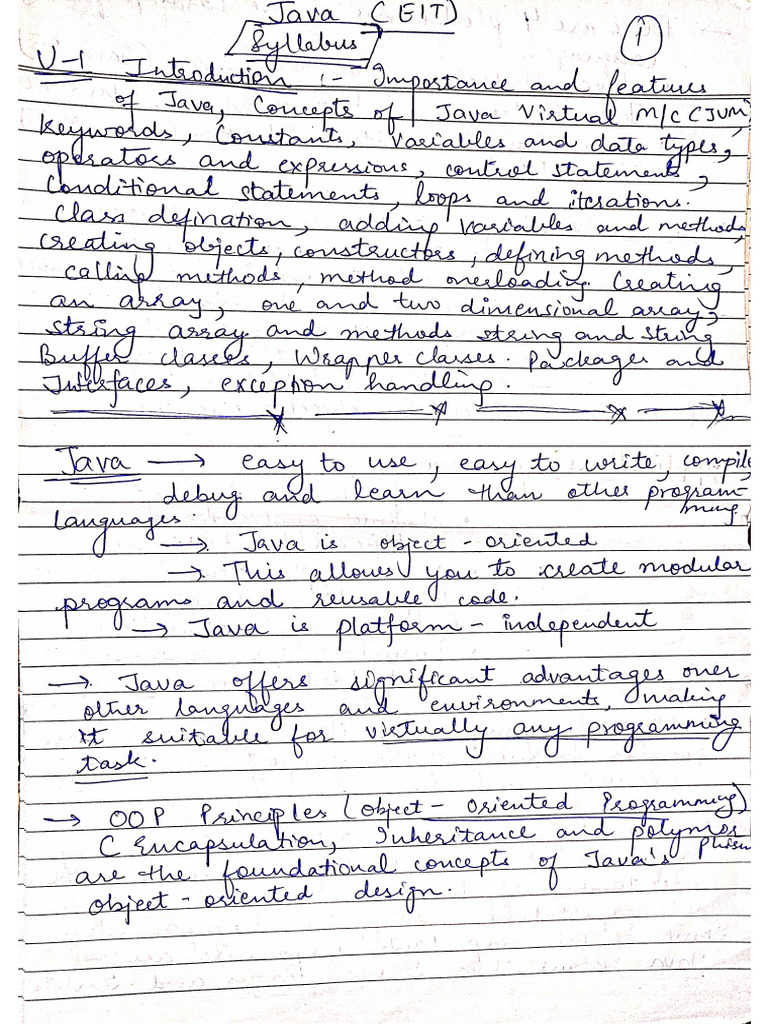 Java (EIT)
Syllabus
1
U-1 Introduction :- Importance and features
of Java, Concepts of Java Virtual M/C (JVM)
keywords, Constants, Variables and data types,
operators and expressions, control statements,
Conditional statements, loops and iterations.
Class defination, adding variables and methods,
creating objects, constructors, defining methods,
calling methods, method overloading. Creating
an array, one and two dimensional array,
string array and methods string and string
Buffer classes, Wrapper classes. Packages and
Interfaces, exception handling.
Java → easy to use, easy to write, compile
debug and learn than other program-
ming
languages.
→ Java is object-oriented
→ This allows you to create modular
programs and reusable code.
→ Java is platform-independent
→ Java offers significant advantages over
other languages and environments, making
it suitable for virtually any programming
task.
→ OOP Principles (Object-Oriented Programming)
( Encapsulation, Inheritance and polymor
phism
are the foundational concepts of Java's
object-oriented design.